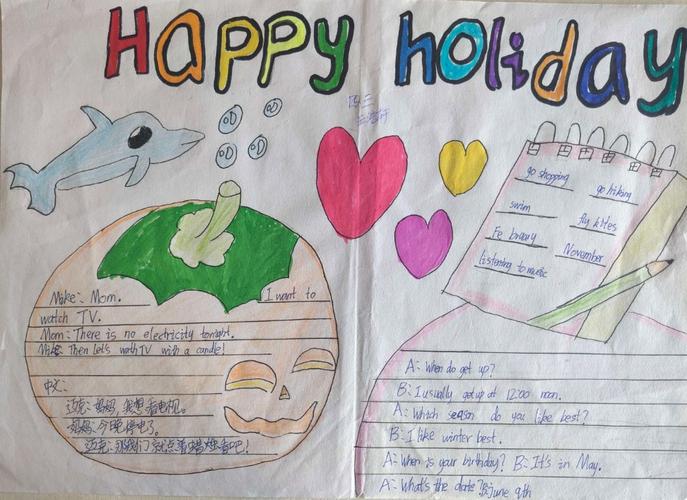 Happy holiday
四三
Make: Mom. I want to
watch TV.
Mom: There is no electricity tonight.
Mike: Then let's wath TV with a candle!
中文:
迈克:妈妈,我想看电视。
妈妈:今晚停电了。
迈克:那我们就点着蜡烛看吧!
go shopping
go hiking
swim
fly kites
Fe bruary
November
listening to music
A: When do get up?
B: I usually get up at 12:00 noon.
A: Which season do you like best?
B: I like winter best.
A: When is your birthday? B: It's in May.
A: What's the date? B: June 9th